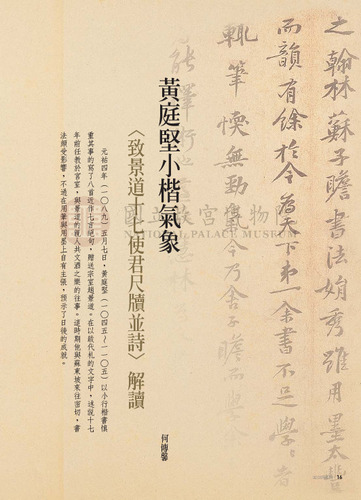 之翰林蘇子瞻書法娟秀雖用墨太豐
而韻有餘於今為天下第一余書不足學學者
輒筆愞無勁氣今乃舍子瞻而學余
黃庭堅小楷氣象
〈致景道十七使君尺牘並詩〉解讀
何傳馨
元祐四年（一〇八九）五月七日，黃庭堅（一〇四五～一一〇五）以小行楷慎
重其事的寫了八首近作七言絕句，贈送宗室趙景道。在以啟代札的文字中，述說十七
年前任教於宮室，與景道的親人共文酒之樂的往事。這時期他與蘇東坡來往密切，書
法頗受影響，不過在用筆與用墨上自有主張，預示了日後的成就。
國立故宮博物
NATIONAL PALACE MUSEUM
16